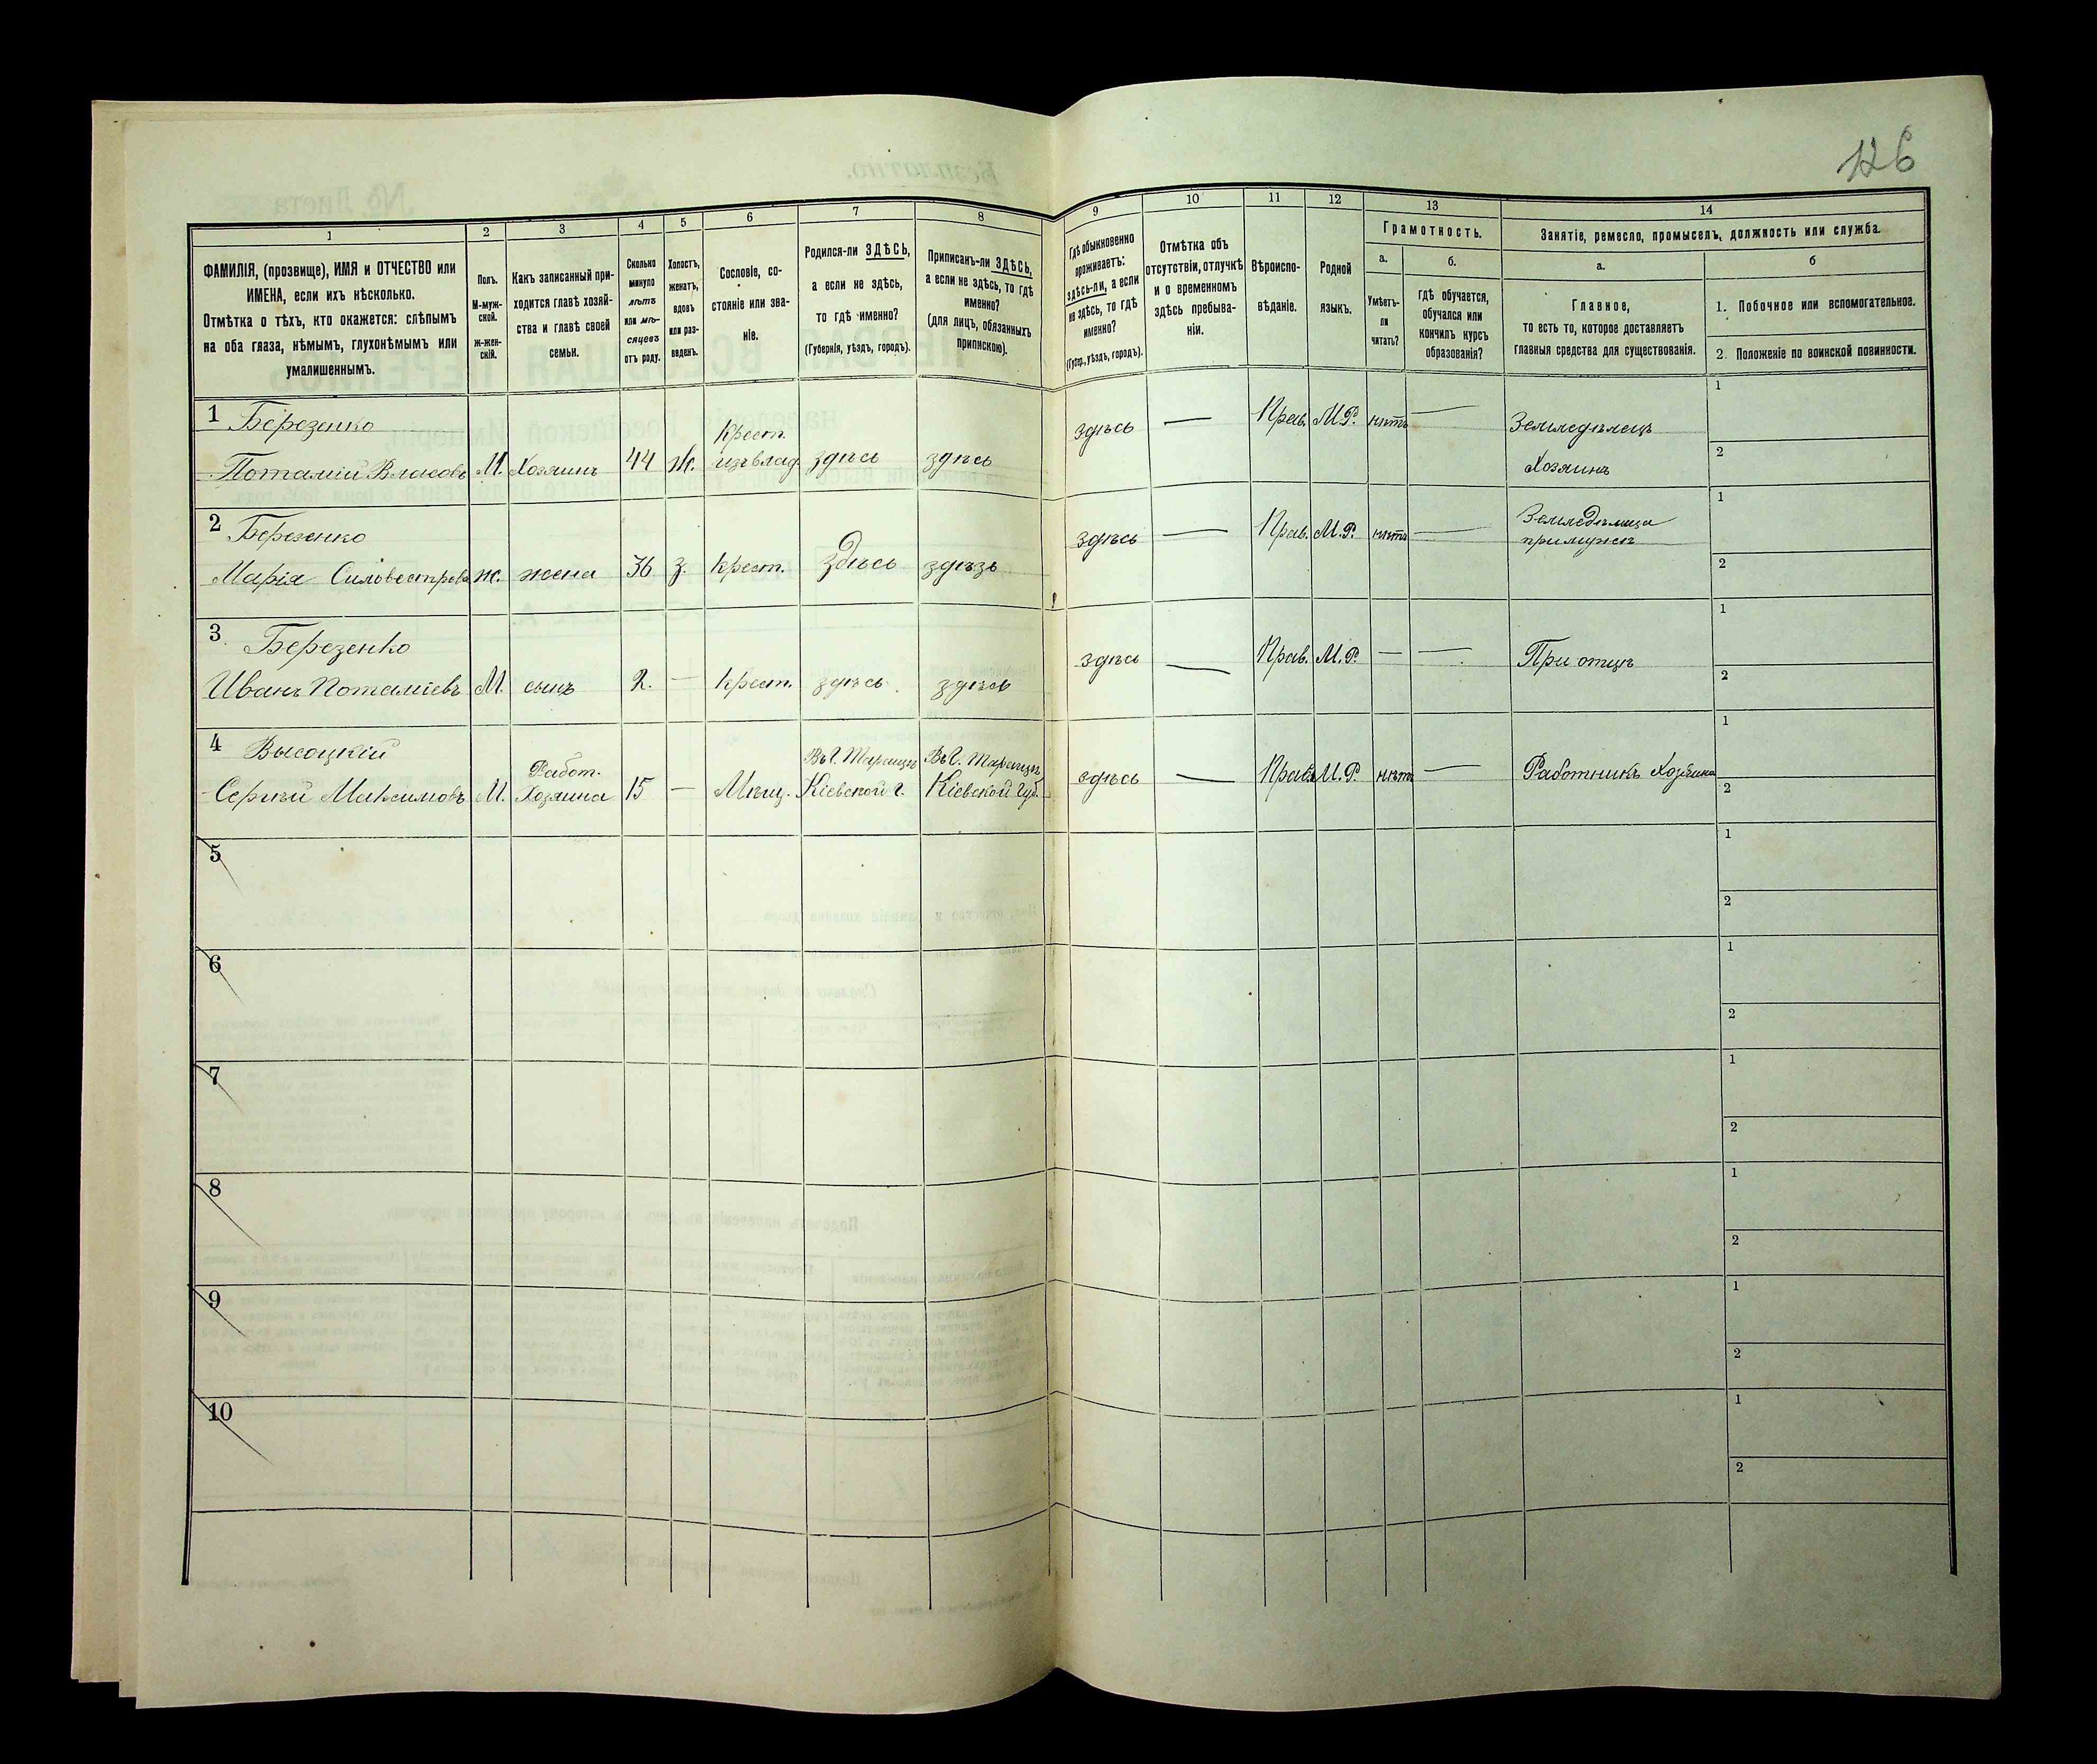 126
1
2
3
4
5
6
7
8
9
10
11
12
13
14
ФАМИЛІЯ, (прозвище), ИМЯ и ОТЧЕСТВО или
ИМЕНА, если ихъ нѣсколько.
Отмѣтка о тѣхъ, кто окажется: слѣпымъ
на оба глаза, нѣмымъ, глухонѣмымъ или
умалишеннымъ.
Полъ.
М-муж-
ской.
ж-жен-
скій.
Какъ записанный при-
ходится главѣ хозяй-
ства и главѣ своей
семьи.
Сколько
минуло
лѣтъ
или мѣ-
сяцевъ
отъ роду.
Холостъ,
женатъ,
вдовъ
или раз-
веденъ.
Сословіе, со-
стояніе или зва-
ніе.
Родился-ли ЗДѢСЬ,
а если не здѣсь,
то гдѣ именно?
(Губернія, уѣздъ, городъ).
Приписанъ-ли ЗДѢСЬ,
а если не здѣсь, то гдѣ
именно?
(для лицъ, обязанныхъ
припискою).
Гдѣ обыкновенно
проживаетъ:
здѣсь-ли, а если
не здѣсь, то гдѣ
именно?
(Губер., уѣздъ, городъ).
Отмѣтка объ
отсутствіи, отлучкѣ
и о временномъ
здѣсь пребыва-
ніи.
Вѣроиспо-
вѣданіе.
Родной
языкъ.
Грамотность.
а.
Умѣетъ-
ли
читать?
б.
гдѣ обучается,
обучался или
кончилъ курсъ
образованія?
Занятіе, ремесло, промыселъ, должность или служба.
а.
Главное,
то есть то, которое доставляетъ
главныя средства для существованія.
б
1. Побочное или вспомогательное.
2. Положеніе по воинской повинности.
1 Березенко
Потапій Власовъ М. Хозяинъ 44 Ж. Крест. изъ влад. здѣсь здѣсь здѣсь — Прав. М.Р. нѣтъ — Земледѣлецъ
Хозяинъ
1
2
2 Березенко
Марія Силовестрова ж. жена 36 З. крест. Здѣсь здѣзь здѣсь — Прав. М.Р. нѣтъ — Земледѣлица
при мужѣ
1
2
3 Березенко
Иванъ Потапіевъ М. сынъ 2. — крест. здѣсь здѣсь здѣсь — Прав. М.Р. — — При отцѣ
1
2
4 Высоцкій
Сергѣй Максимовъ М. Работ. Хозяина 15 — Мѣщ. Въ Г. Таращѣ Кіевской г. Въ Г. Таращѣ Кіевской Губ. здѣсь — Прав. М.Р. нѣтъ — Работникъ Хозяина
1
2
5
1
2
6
1
2
7
1
2
8
1
2
9
1
2
10
1
2